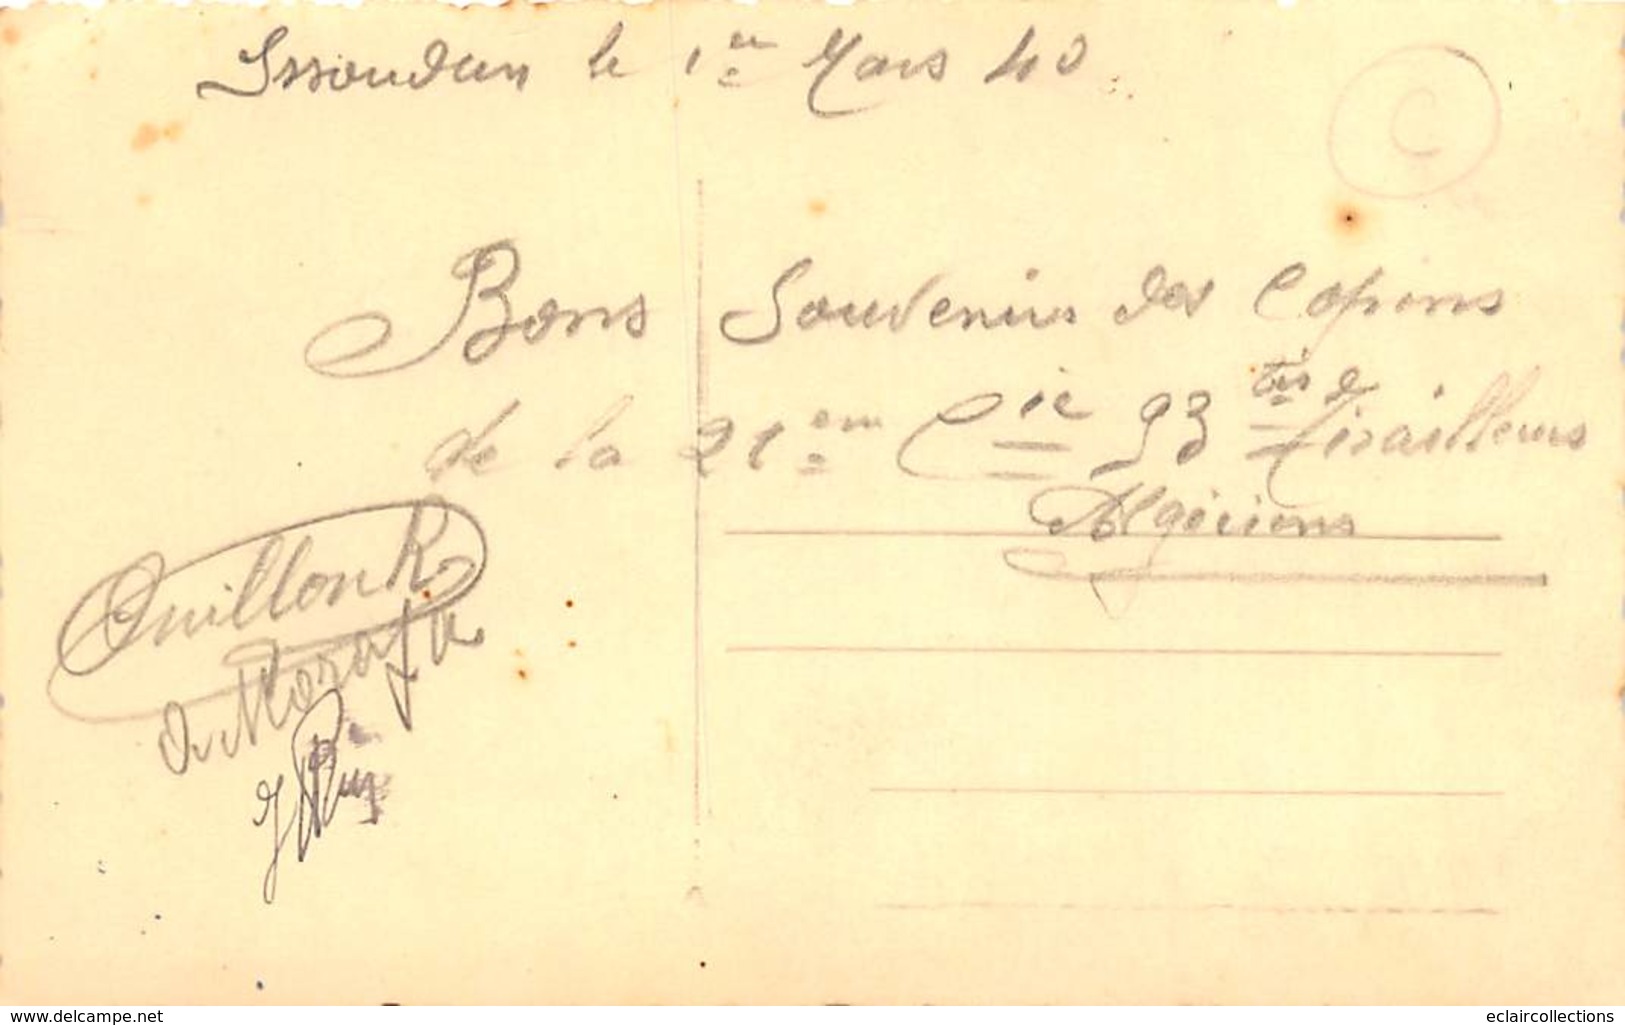 Issoudun le 1er Mars 40
C
Bons Souvenirs des Copins
de la 21em Cie 93 Tirailleurs
Algériens
www.delcampe.net
eclaircollections